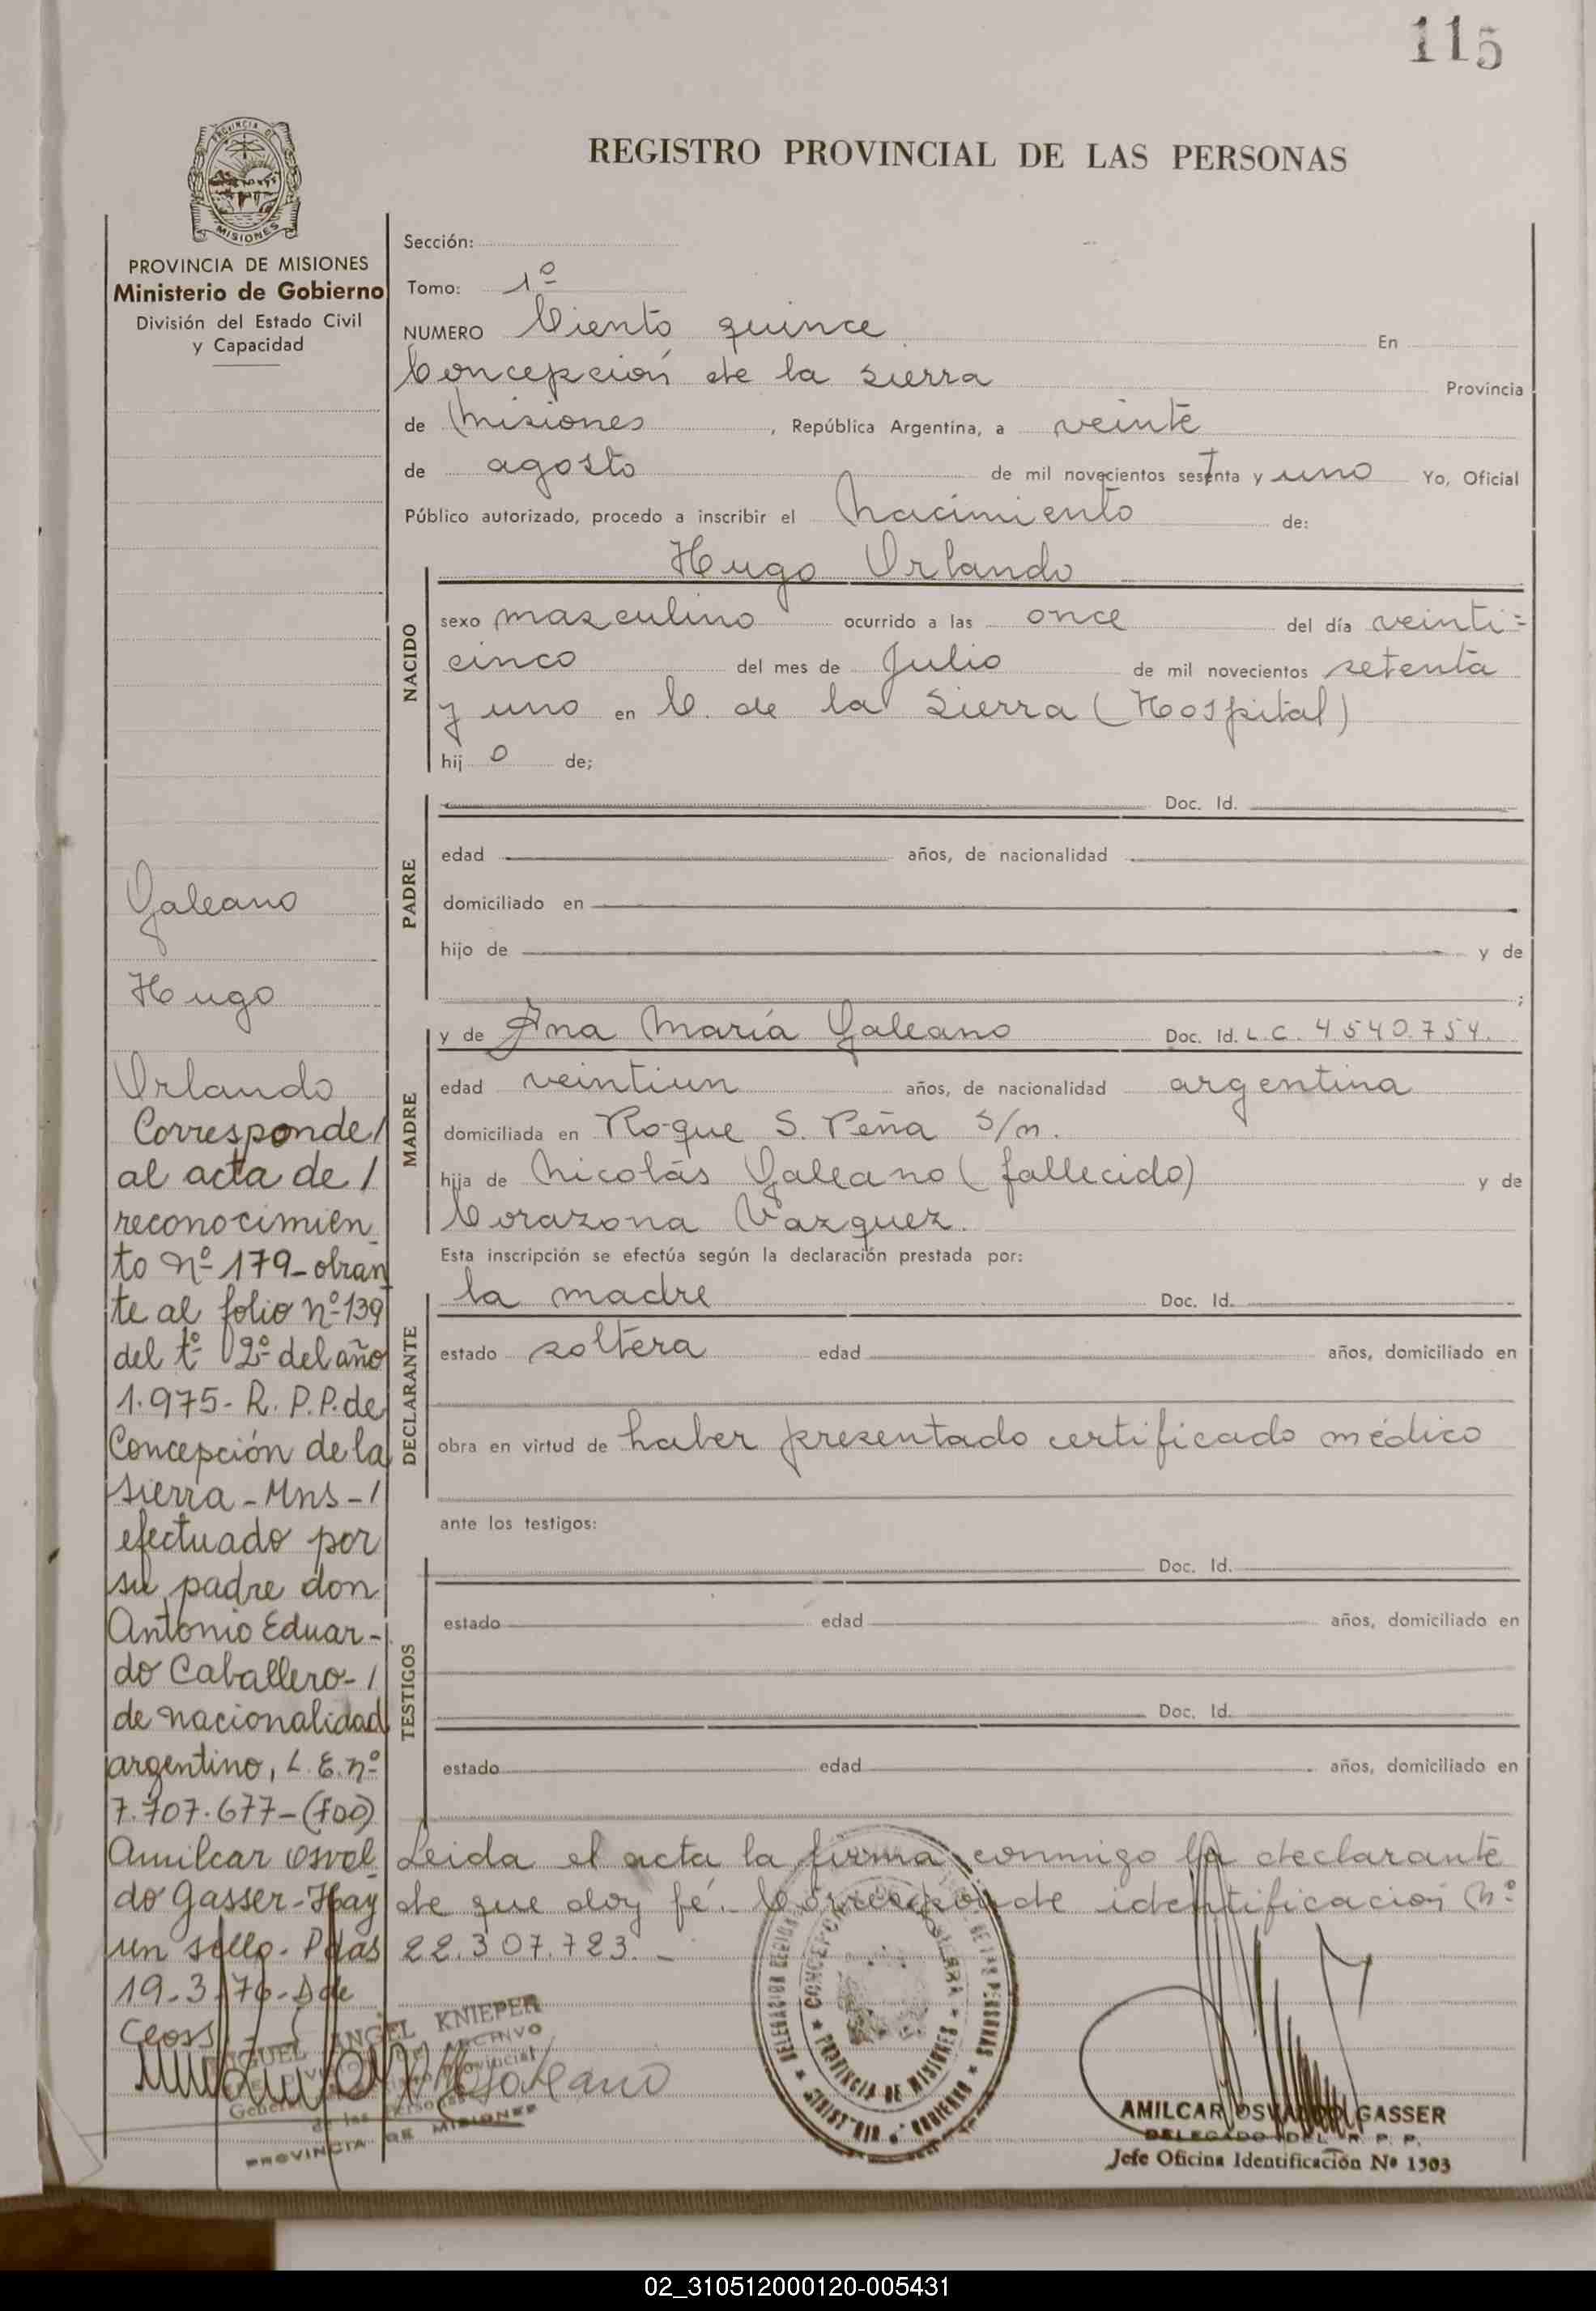 115
PROVINCIA DE MISIONES
REGISTRO PROVINCIAL DE LAS PERSONAS
PROVINCIA DE MISIONES
Ministerio de Gobierno
División del Estado Civil
y Capacidad
Sección:
Tomo: 1º
NUMERO Ciento quince En
Concepción de la Sierra Provincia
de Misiones, República Argentina, a veinte
de agosto de mil novecientos setenta y uno Yo, Oficial
Público autorizado, procedo a inscribir el Nacimiento de:
Hugo Orlando
NACIDO
sexo masculino ocurrido a las once del día veinti=
cinco del mes de Julio de mil novecientos setenta
y uno en C. de la Sierra (Hospital)
hij o de;
PADRE
Doc. Id.
edad años, de nacionalidad
domiciliado en
hijo de y de
;
MADRE
y de Ana María Galeano Doc. Id. L.C. 4540.754.
edad veintiun años, de nacionalidad argentina
domiciliada en Roque S. Peña S/n.
hija de Nicolás Galeano (fallecido) y de
Corazona Vazquez.
Esta inscripción se efectúa según la declaración prestada por:
DECLARANTE
la madre Doc. Id.
estado soltera edad años, domiciliado en
obra en virtud de haber presentado certificado médico
ante los testigos:
TESTIGOS
Doc. Id.
estado edad años, domiciliado en
Doc. Id.
estado edad años, domiciliado en
Leida el acta la firma conmigo la declarante
de que doy fé.- Corresponde identificación Nº
22.307.723.-
Galeano
Hugo
Orlando
Corresponde/
al acta de/
reconocimien
to Nº 179-obran
te al folio nº 139
del tº 2º del año
1.975- R. P.P. de
Concepción de la
Sierra-Mns-/
efectuado por
su padre don
Antonio Eduar-
do Caballero-/
de nacionalidad
argentino, L. E. nº
7.707.677-(fdo)
Amilcar Osval
do Gasser-Hay
un sello. Pdas
19-3-76-
MIGUEL ANGEL KNIEPER
PROVINCIA DE MISIONES
Galeano
CONCEPCION DE LA SIERRA
PROVINCIA DE MISIONES
AMILCAR OSVALDO GASSER
DELEGADO DEL R. P. P.
Jefe Oficina Identificación Nº 1303
02_310512000120-005431